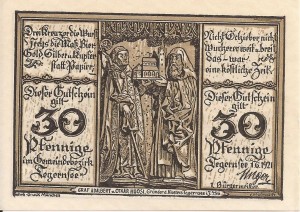 Drei Kreuzer die Wurst
Sechs die Maß Bier
Gold Silber u. Kupfer
statt Papier.
Nicht Schieber nicht
Wucherer weit u. breit
Das war
eine köstliche Zeit.
Dieser Gutschein
gilt
30
Pfennige
im Gemeindebezirk
Tegernsee
Dieser Gutschein
gilt
30
Pfennige
Tegernsee 1.6.1921
1. Bürgermeister
GRAF ADALBERT u. OTKAR HUOSI, Gründer d. Klosters Tegernsee i. J. 746